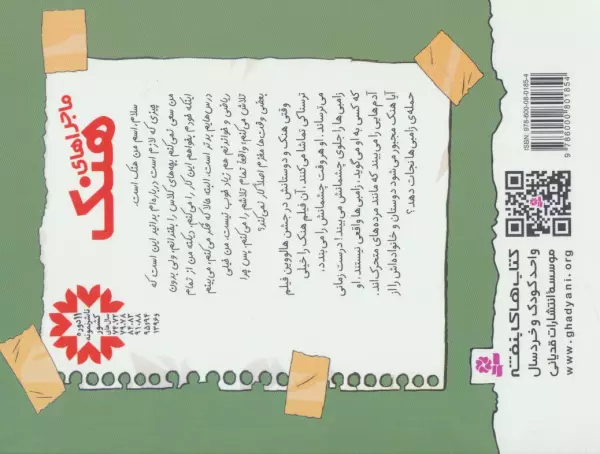 ماجراهای
هنک
سلام، اسم من هنک است.
چیزی که لازم است درباره‌ام بدانید این است که
من سعی نمی‌کنم بچه‌های کلاس را بخندانم، ولی بدون
اینکه خودم بخواهم این کار را می‌کنم. دیکته من از تمام
درس‌هایم بدتر است، البته حالا که فکر می‌کنم، می‌بینم
ریاضی و خواندنم هم زیاد خوب نیست. من خیلی
تلاش می‌کنم؛ واقعا تمام تلاشم را می‌کنم. پس چرا
بعضی وقت‌ها مغزم اصلا کار نمی‌کند؟
وقتی هنک و دوستانش در جشن هالووین فیلم
ترسناکی تماشا می‌کنند، آن فیلم هنک را خیلی
می‌ترساند. او هر وقت چشمانش را می‌بندد،
زامبی‌ها را جلوی چشمانش می‌بیند! درست زمانی
که کسی به او می‌گوید، زامبی‌ها واقعی نیستند، او
آدم‌هایی را می‌بیند که مانند مرده‌های متحرک‌اند.
آیا هنک مجبور می‌شود دوستان و خانواده‌اش را از
حمله‌ی زامبی‌ها نجات دهد؟
۱۱ دوره
ناشر نمونه
کشور
سال‌های
۷۴،۷۳
۷۹،۷۸
۸۴،۸۳
۹۱،۸۸
۹۵،۹۴
۱۳۹۶و
کتاب‌های بنفشه
واحد کودک و خردسال
موسسه انتشارات قدیانی
www.ghadyani.org
ISBN: 978-600-08-0185-4
9 786000 801854